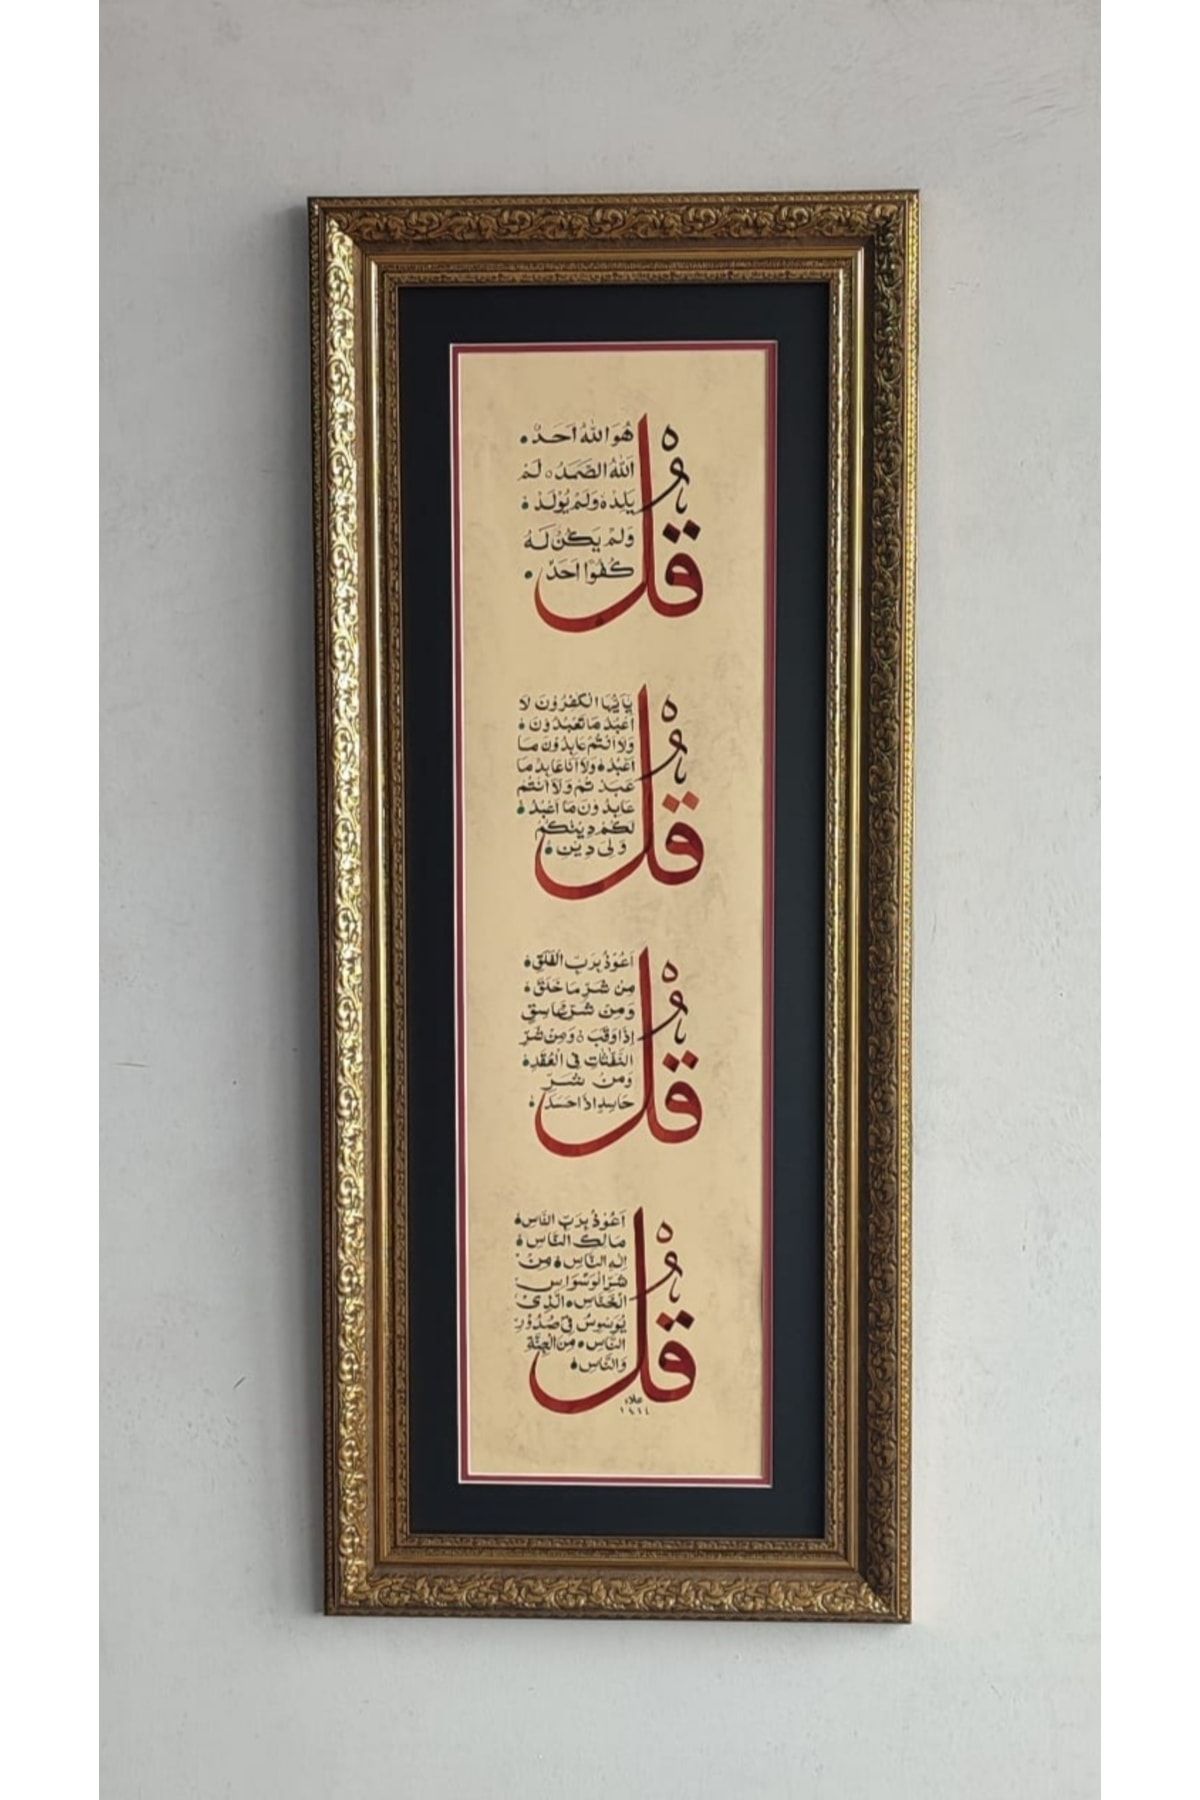 قُلْ
هُوَ اللّٰهُ اَحَدٌ
اَللّٰهُ الصَّمَدُ لَمْ
يَلِدْ وَلَمْ يُوْلَدْ
وَلَمْ يَكُنْ لَهُ
كُفُوًا اَحَدٌ
قُلْ
يَآ اَيُّهَا الْكٰفِرُوْنَ لَا
اَعْبُدُ مَا تَعْبُدُوْنَ
وَلَا اَنْتُمْ عَابِدُوْنَ مَا
اَعْبُدُ وَلَا اَنَا عَابِدُ مَا
عَبَدْتُمْ وَلَا اَنْتُمْ
عَابِدُوْنَ مَا اَعْبُدُ
لَكُمْ دِيْنُكُمْ
وَلِىَ دِيْنِ
قُلْ
اَعُوْذُ بِرَبِّ الْفَلَقِ
مِنْ شَرِّ مَا خَلَقَ
وَمِنْ شَرِّ غَاسِقٍ
اِذَا وَقَبَ وَمِنْ شَرِّ
النَّفّٰثٰتِ فِى الْعُقَدِ
وَمِنْ شَرِّ
حَاسِدٍ اِذَا حَسَدَ
قُلْ
اَعُوْذُ بِرَبِّ النَّاسِ
مَالِكِ النَّاسِ
اِلٰهِ النَّاسِ مِنْ
شَرِّ الْوَسْوَاسِ
الْخَنَّاسِ الَّذِىْ
يُوَسْوِسُ فِىْ صُدُوْرِ
النَّاسِ مِنَ الْجِنَّةِ
وَالنَّاسِ
علاء